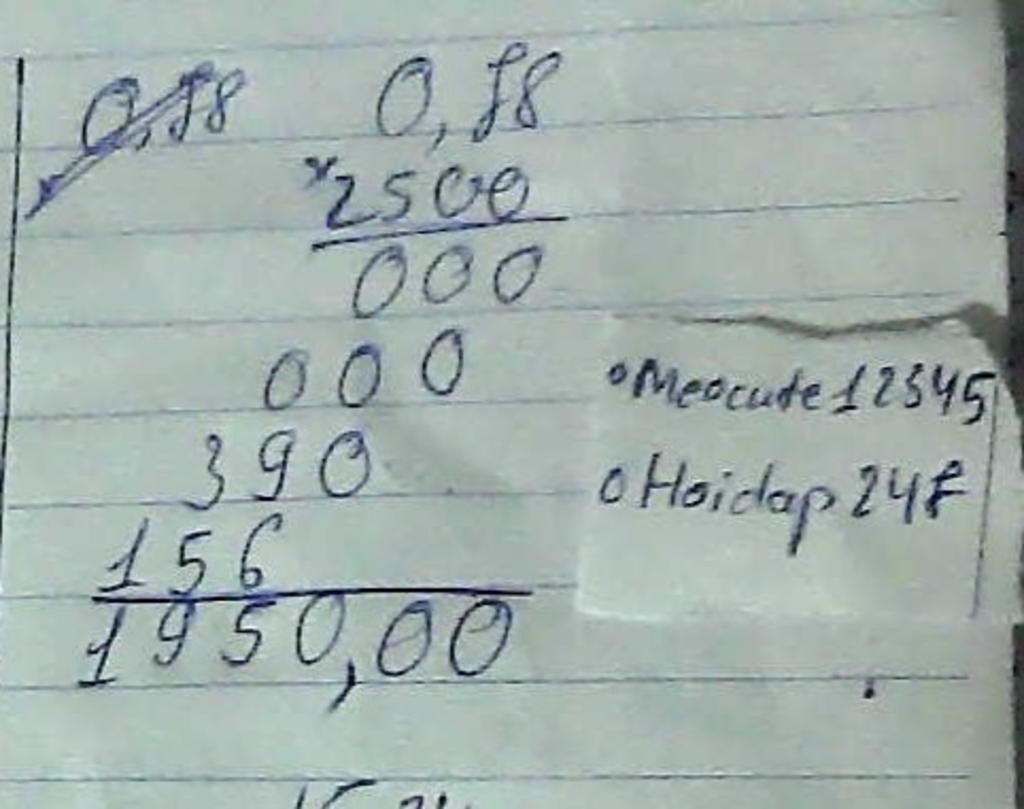 0,78 0,78
x 2500
000
000
390
156
1950,00
Meocute12345
Hoidap247